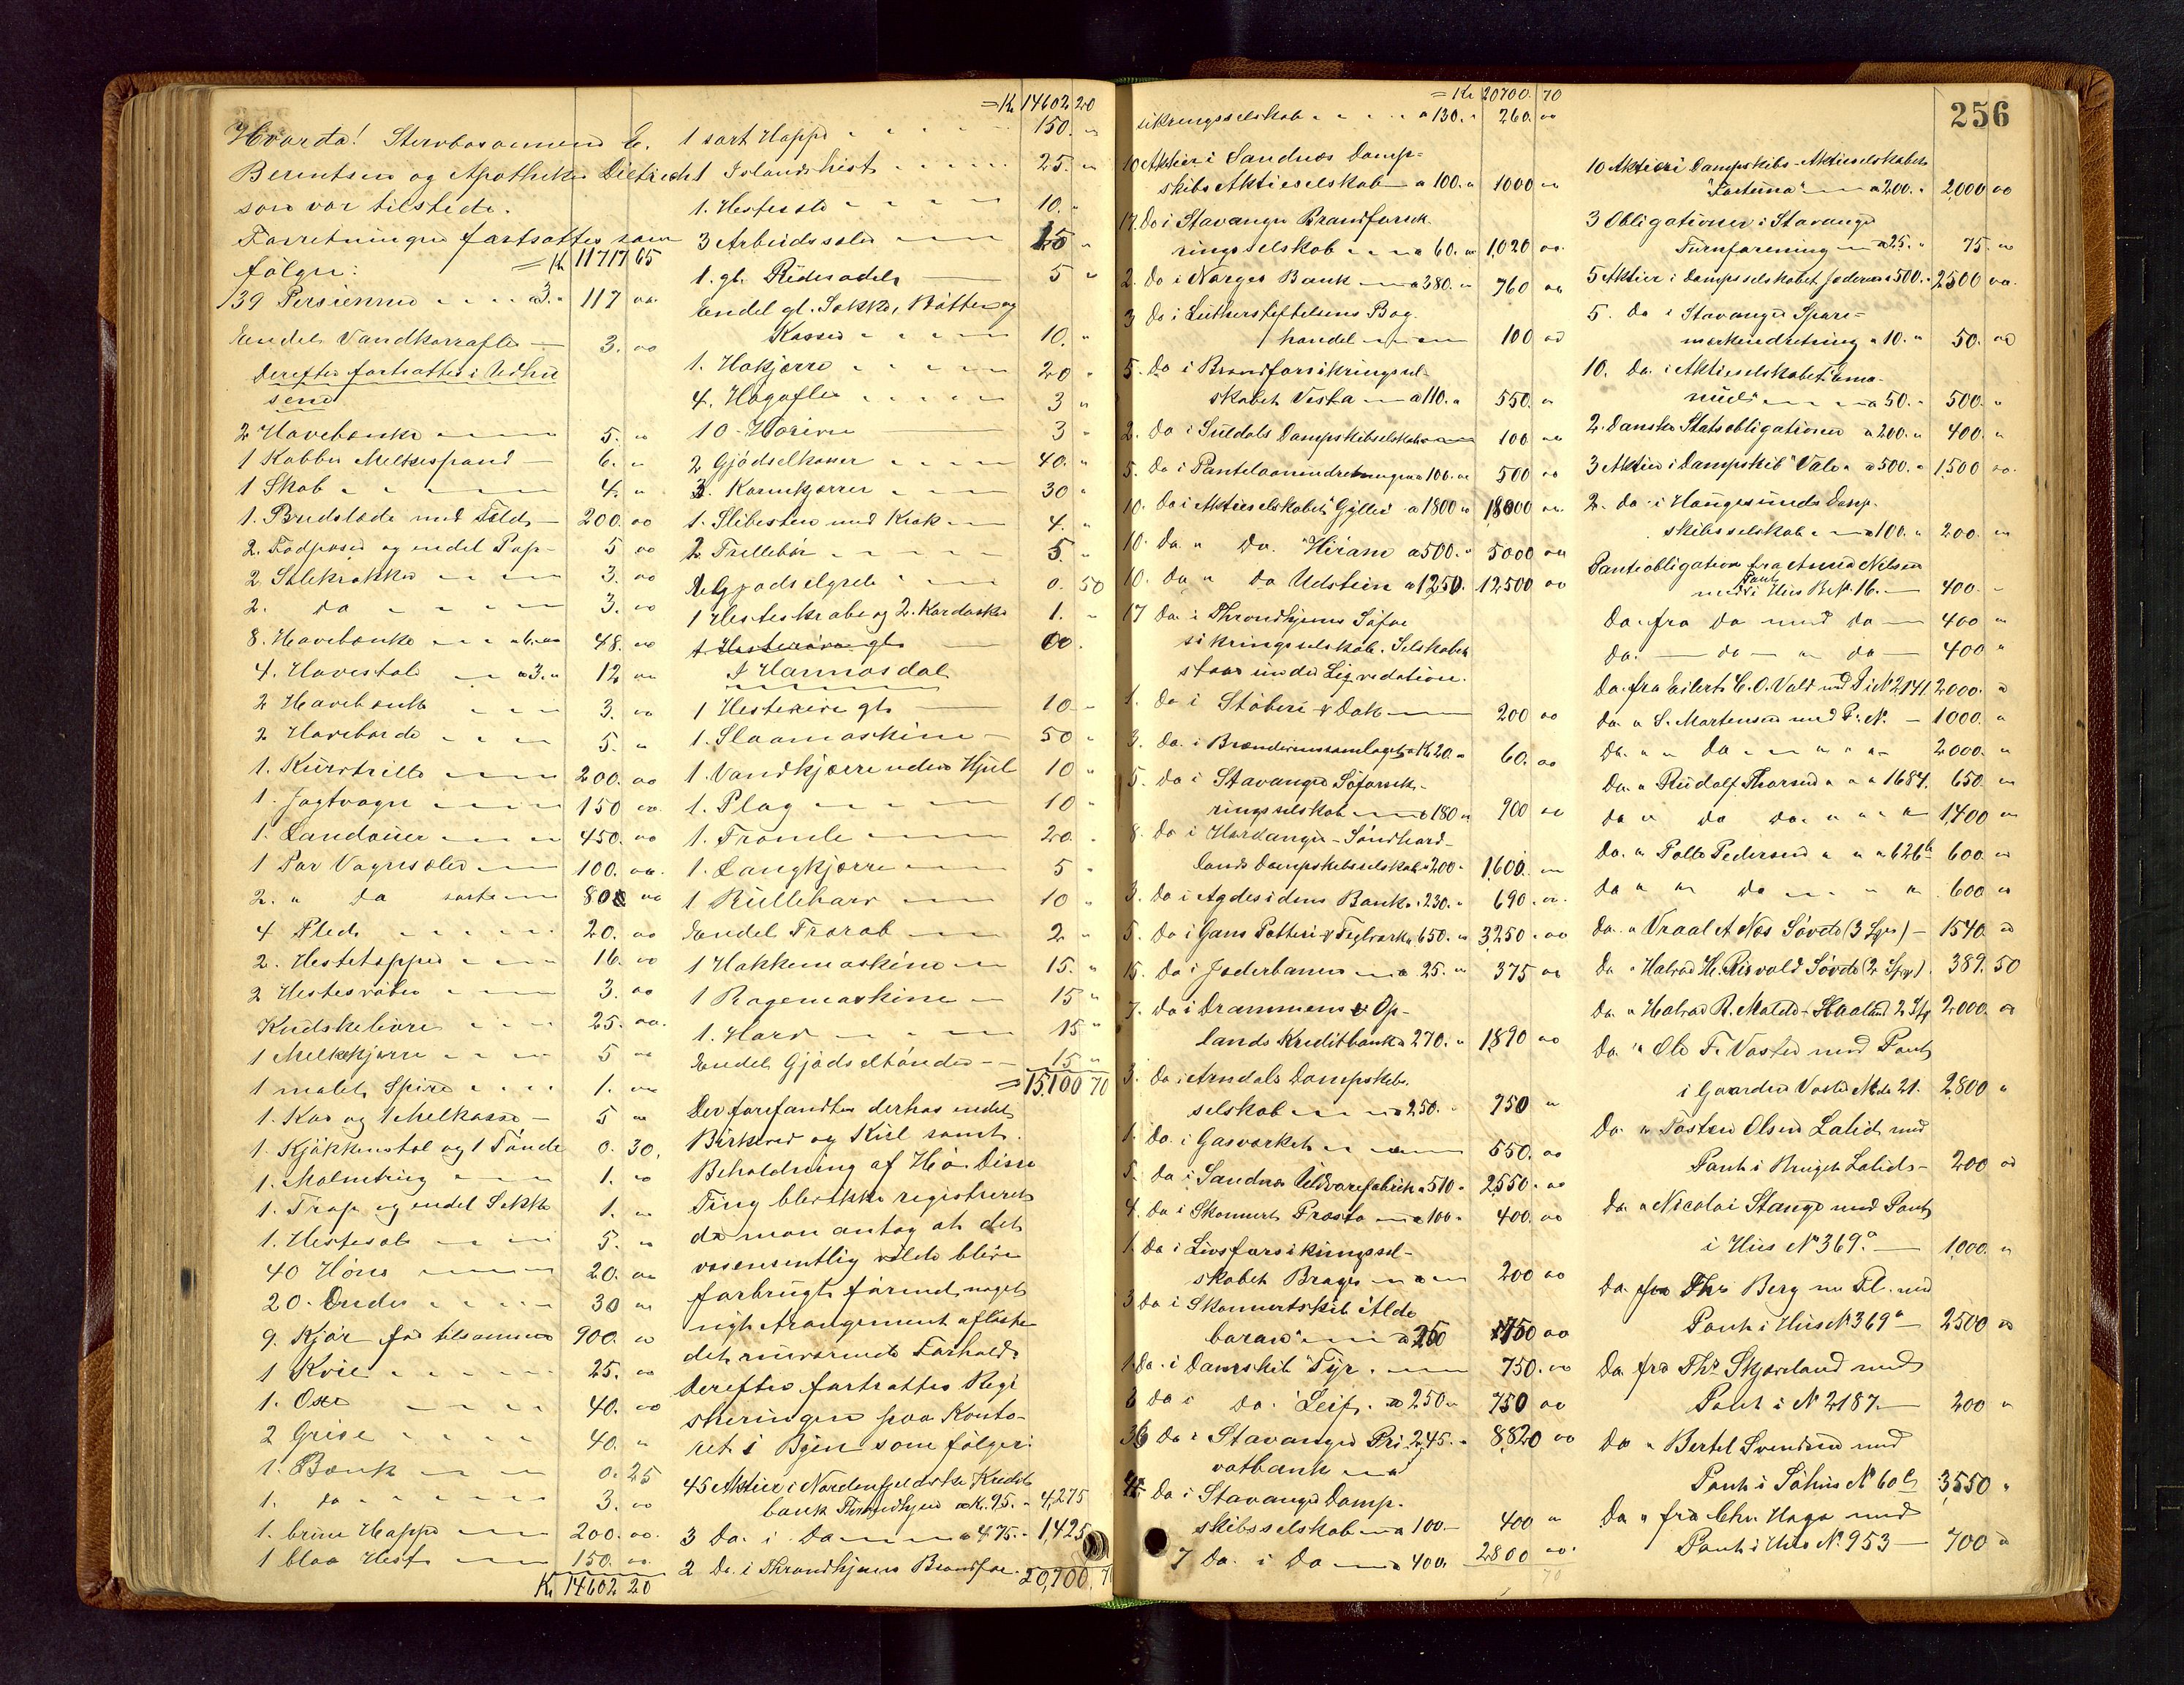 Hvorda! Stervbosønnend E.
Berentsen og Apotheker Dietrichs
som var tilstede.
Forretningen fortsattes som
følger:
= Kr 11717 65
39 Persienner a 3. " 117 oo
Endel Vandkarafler 3. oo
Derefter fortsattes i Udhu
sene
2 Havebænke 5. oo
1 Kobber Melkespand 6. "
1 Skab 4. "
1. Budslæde med Feld 200. oo
2. Fodposer og endel Pap 5 oo
2 Salekrakker 3. oo
2. do 3. oo
8. Havebænke a 6. oo 48. oo
4. Havestole a 3. " 12 oo
2 Havebænk 3. oo
2 Haveborde 5. "
1. Kurvtrille 200. oo
1. Jagtvogn 150 oo
1. Landauer 450. oo
1 Par Vognseler 100. oo
2. " do sorte 80 oo
4 Pleds 20. oo
2. Hestetepper 16. oo
2 Hesteskaber 3. oo
Kudskelivre 25. oo
1 Melkekjærre 5 oo
1 malet Spire 1. oo
1. Kar og 1 Melkasse 5 oo
1. Kjøkkenstol og 1 Tønde 0. 30.
1. Malmtring 1. oo
1. Trap og endel Sekke 1. "
1. Hestesele 5. "
40 Høns 20. oo
20. Ender 30 oo
9. Kjør for tilsammen 900. oo
1 Kvie 25. oo
1. Oxe 40. oo
2 Grise 40. "
1. Bænk 0. 25
1. do 3. oo
1. brun Hoppe 200. oo.
1 blaa Hest 150. oo.
Kr 14602 20
= Kr 14602 20
1 sort Hoppe 150. "
1 Islandshest 25. "
1. Hestesele 10. "
3 Arbeidsseler 15 "
1. gl. Ridesadel 5 "
Endel gl. Sekke, Bøtter og
Kasser 10. "
1. Høkjærre 20 "
4. Høgafler 3 "
10 Høriver 3 "
2 Gjødselkasser 40. "
3. Karmkjærrer 30 "
1. Slibesten med Krak 4. "
2 Trillebør 5. "
1 Gjødselgreb 0. 50
1 Hesteskrabe og 2. Kardæske 1. "
1. Hesterive gl.
I Hannasdal.
1 Hesterive gl. 10 "
1. Slaamaskine 50 "
1. Vandkjærre uden Hjul 10 "
1. Plog 10 "
1. Tromle 20. "
1. Langkjærre 5 "
1 Rulleharv 10 "
Endel Træræb 2 "
1 Hakkemaskine 15. "
1 Ragemaskine 15 "
1. Harv 15 "
Endel Gjødseltønder 15 "
= 15100 70
Der forefandtes derhos endel
Birkeved og Kul samt
Beholdning af Hø. Disse
Ting blev ikke registreret
da man antog at det
væsentlig vilde blive
forbrugt førend noget
nyt Arangement afløste
det nuværende Forhold.
Derefter fortsattes Regi
streringen paa Konto-
ret i Byen som følger:
45 Aktier i Nordenfjeldske Kredit
bank Throndhjem a Kr. 95. " 4,275
3 Do. i Do a 475. " 1,425
2 Do. i Throndhjems Brandfor- 20,700. 70
= Kr 20700. 70
sikringsselskab a 130. " 260. oo
10 Aktier i Sandnes Damp-
skibs Aktieselskab a 100. " 1000 "
17. Do i Stavanger Brandforsik-
ringsselskab a 60. " 1,020 oo.
2. Do i Norges Bank a 380. " 760 oo
3 Do i Lutherstiftelsens Bog-
handel 100 oo
5. Do i Brandforsikringssel-
skabet Vesta a 110. " 550. "
2. Do i Suldals Dampskibsselskab 100 oo
5. Do i Pantelaanindretningen a 100. " 500 oo
10. Do i Aktieselskabet "Gyller a 1800 " 18000 oo.
10. Do " Do. "Hiram a 500. " 5000 oo
10. Do " Do Udstein a 1250. 12500 oo
17 Do i Throndhjems Søfor
sikringsselskab. Selskabet
staar under Liqvidation.
1. Do i Støberi & Dok 200 oo
3. Do. i Brænderisamlaget a Kr. 20. " 60. oo
5. Do i Stavanger Søforsik-
ringsselskab a 180 " 900 oo
8. Do i Hardanger-Søndhord-
lands Dampskibsselskab a 200 " 1,600. "
3. Do i Agdesidens Bank a 230. " 690. oo.
5. Do i Gans Potteri & Teglværk a 650. " 3,250. oo
15. Do i Jæderbanen a 25. " 375 oo
7. Do i Drammens & Op-
lands Kreditbank a 270. " 1890 oo
3. Do. i Arndals Dampskibs-
selskab a 250. " 750 "
1. Do. i Gasværket 550. oo
5. Do i Sandnæs Uldvarefabrik a 510 " 2,550. oo
4. Do i Skonnert Prøsto a 100. " 400. oo
1. Do i Livsforsikringssel-
skabet Brage 200 oo
3 Do i Skonnertskib "Alde
baran" a 250 750 oo
1. Do. i Damskib "Tyr. 750. oo
3 Do i Do. Leif. a 250. " 750 oo
36 Do i Stavanger Pri 245. " 8,820 oo
vatbank a
4. Do i Stavanger Damp-
skibsselskab a 100 400 "
7 Do. i Do a 400. 2800 oo.
256
10 Aktier i Dampskibs-Aktieselskabet
"Fortuna" a 200. " 2,000 oo
3 Obligationer i Stavanger
Turnforening a 25. " 75. oo
5 Aktier i Dampsselskabet Jæderen a 500. " 2500 oo.
5. Do i Stavanger Spare-
mærkeindretning a 10. " 50. oo
10. Do. i Aktieselskabet ama-
nuel a 50. " 500. "
2. Danske Statsobligationer a 200. " 400. "
3 Aktier i Dampskib "Vale" a 500. " 1,500 oo.
2. Do. i Haugesunds Damp-
skibsselskab a 100. " 200. "
Panteobligation fra Anna Nilsen
med Pant i Hus No. 16. 400. "
Do. fra Do med Do 400 "
Do. Do Do 400 "
Do. fra Eilert C. O. Vold med P. i No 2141 2000. "
Do. " S. Martensen med P. i N. 1000. "
Do. " " Do " " " " 2000. "
Do. " Rudolf Thorsen " " " 1684. 650. "
Do " Do Do. " " " 1,400 "
Do. " Palle Pedersen " " " 626b 600. "
Do " " Do " " " 600 "
Do. " Vraal A Næs Søvde (3 Spr) 1540. "
Do " Halvad H. Risvold Søvde (2 Spr). 389. 50
Do. " Halvad R. Molde-Haaland 2 Str 2,000. oo
Do. " Ole T. Vasten med Pant
i Gaarden Vaste Mdo 21. 2800 "
Do. " Tosten Olsen Lalid med
Pant i Bruget Lalids 200 "
Do. " Nicolai Stange med Pant
i Hus No 369.a 1,000. "
Do. fra Ths Berg m Fl. med
Pant i Hus No 369a 2500 oo
Do. fra Ths Skjæveland med
Pant i No 2187. 200 "
Do " Bertel Svendsen med
Pant i Søhus No 60c 3,550 "
Do " fra Chr. Haga med
Pant i Hus No. 953 700 "